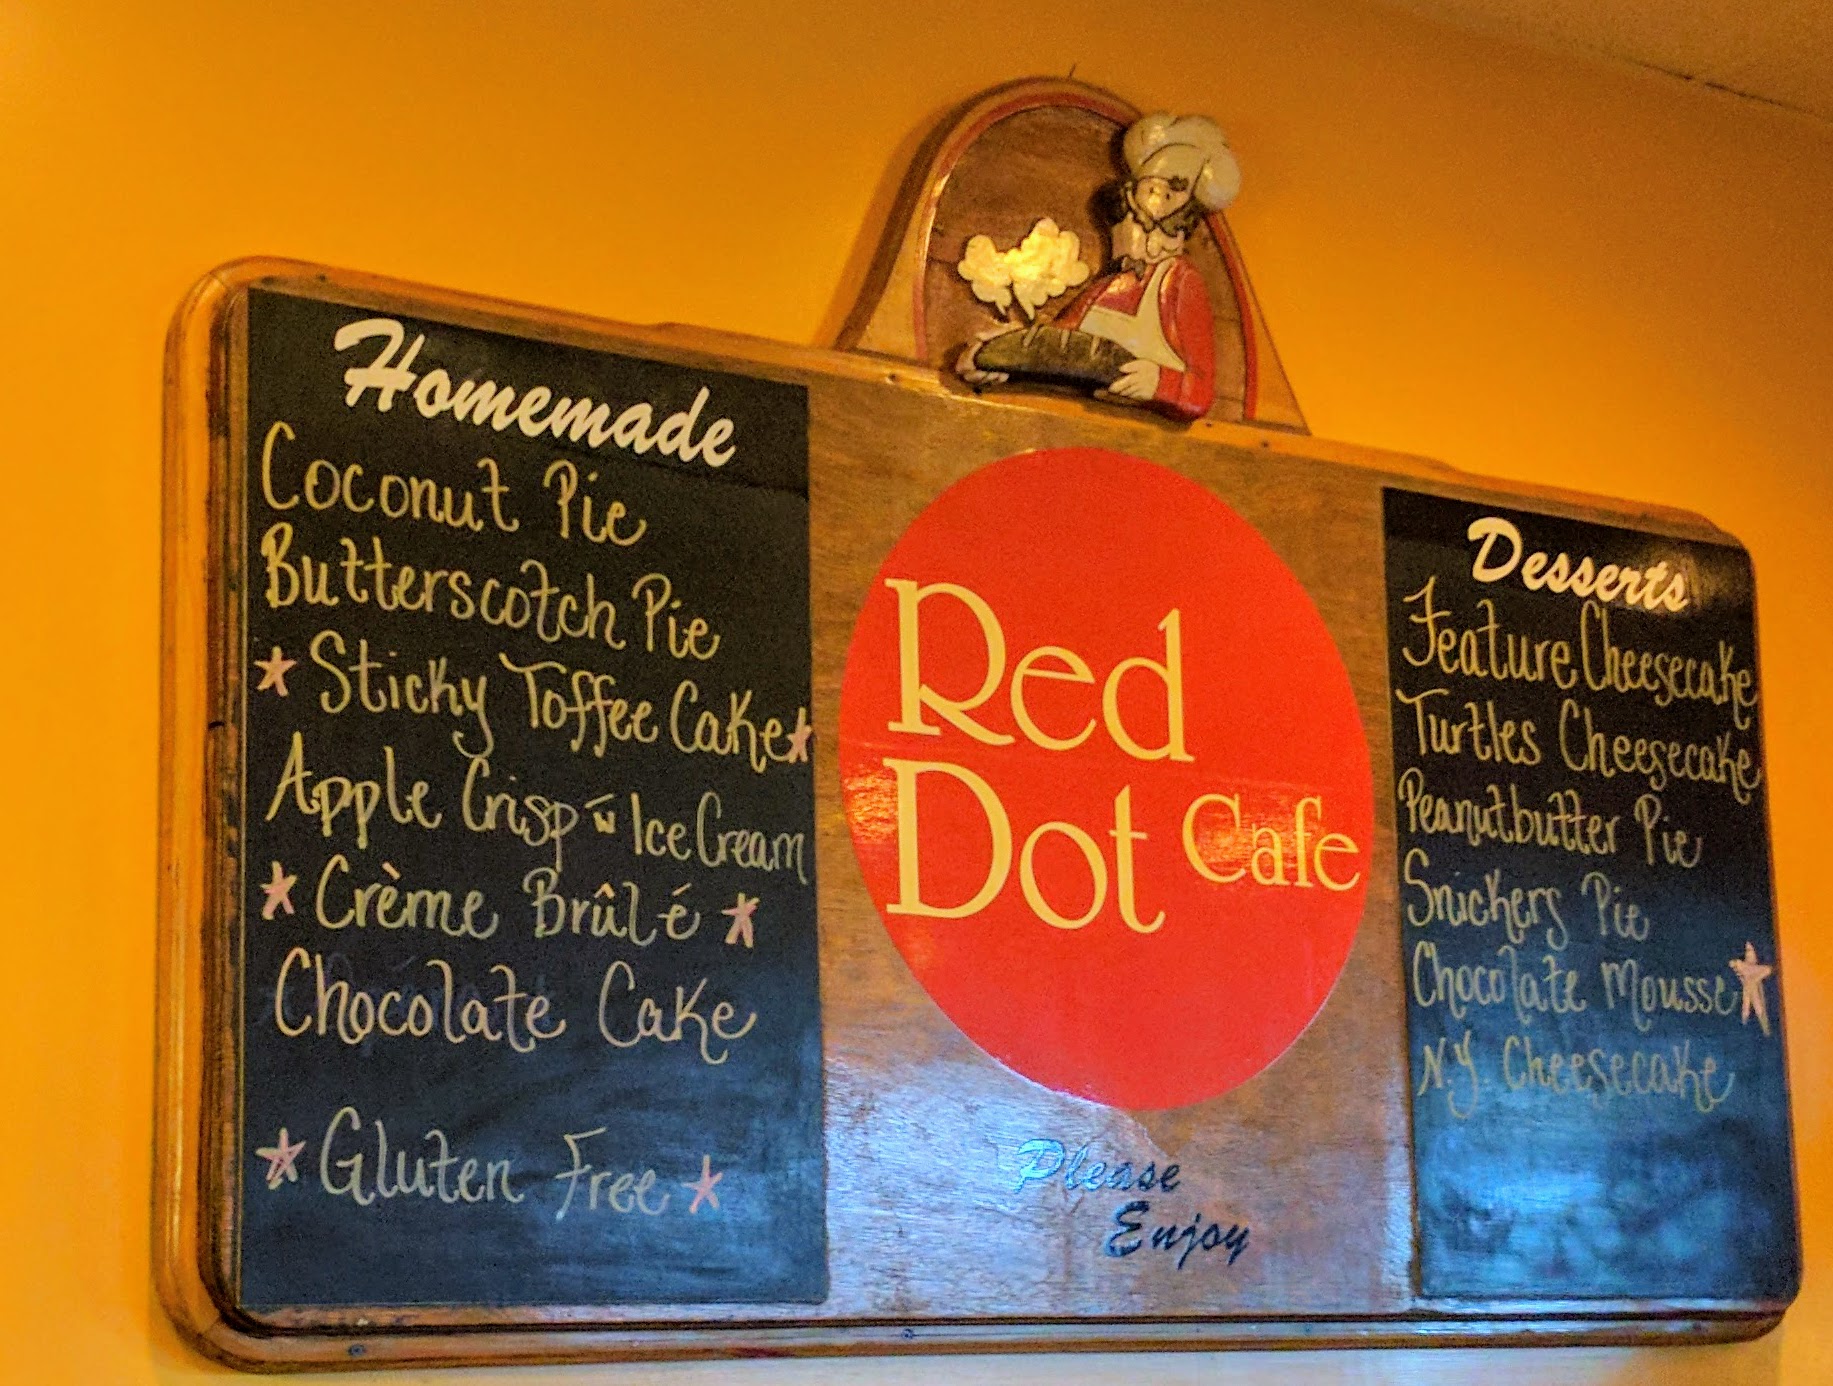 Homemade
Coconut Pie
Butterscotch Pie
Sticky Toffee Cake
Apple Crisp w Ice Cream
Crème Brûlé
Chocolate Cake
Gluten Free
Red
Dot Cafe
Please
Enjoy
Desserts
Feature Cheesecake
Turtles Cheesecake
Peanutbutter Pie
Snickers Pie
Chocolate Mousse
N.Y. Cheesecake